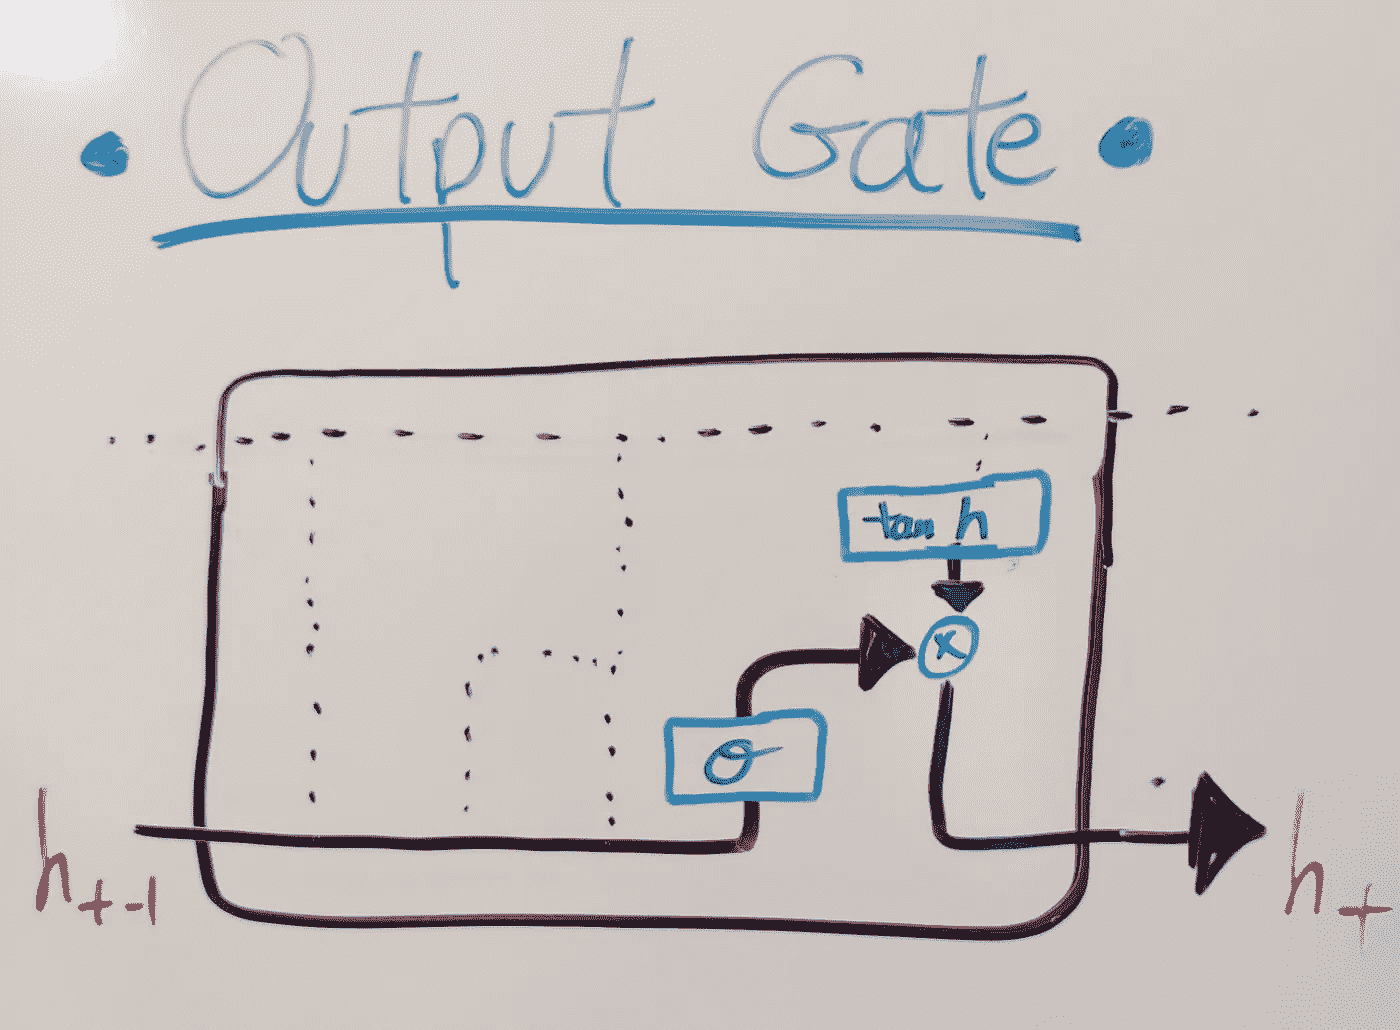 • Output Gate •
tan h
x
σ
h t-1
h t